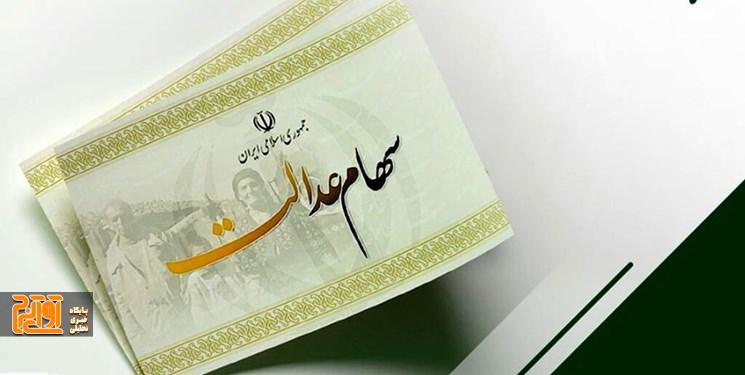 جمهوری اسلامی ایران
سهام عدالت
پایگاه
خبری
تحلیلی